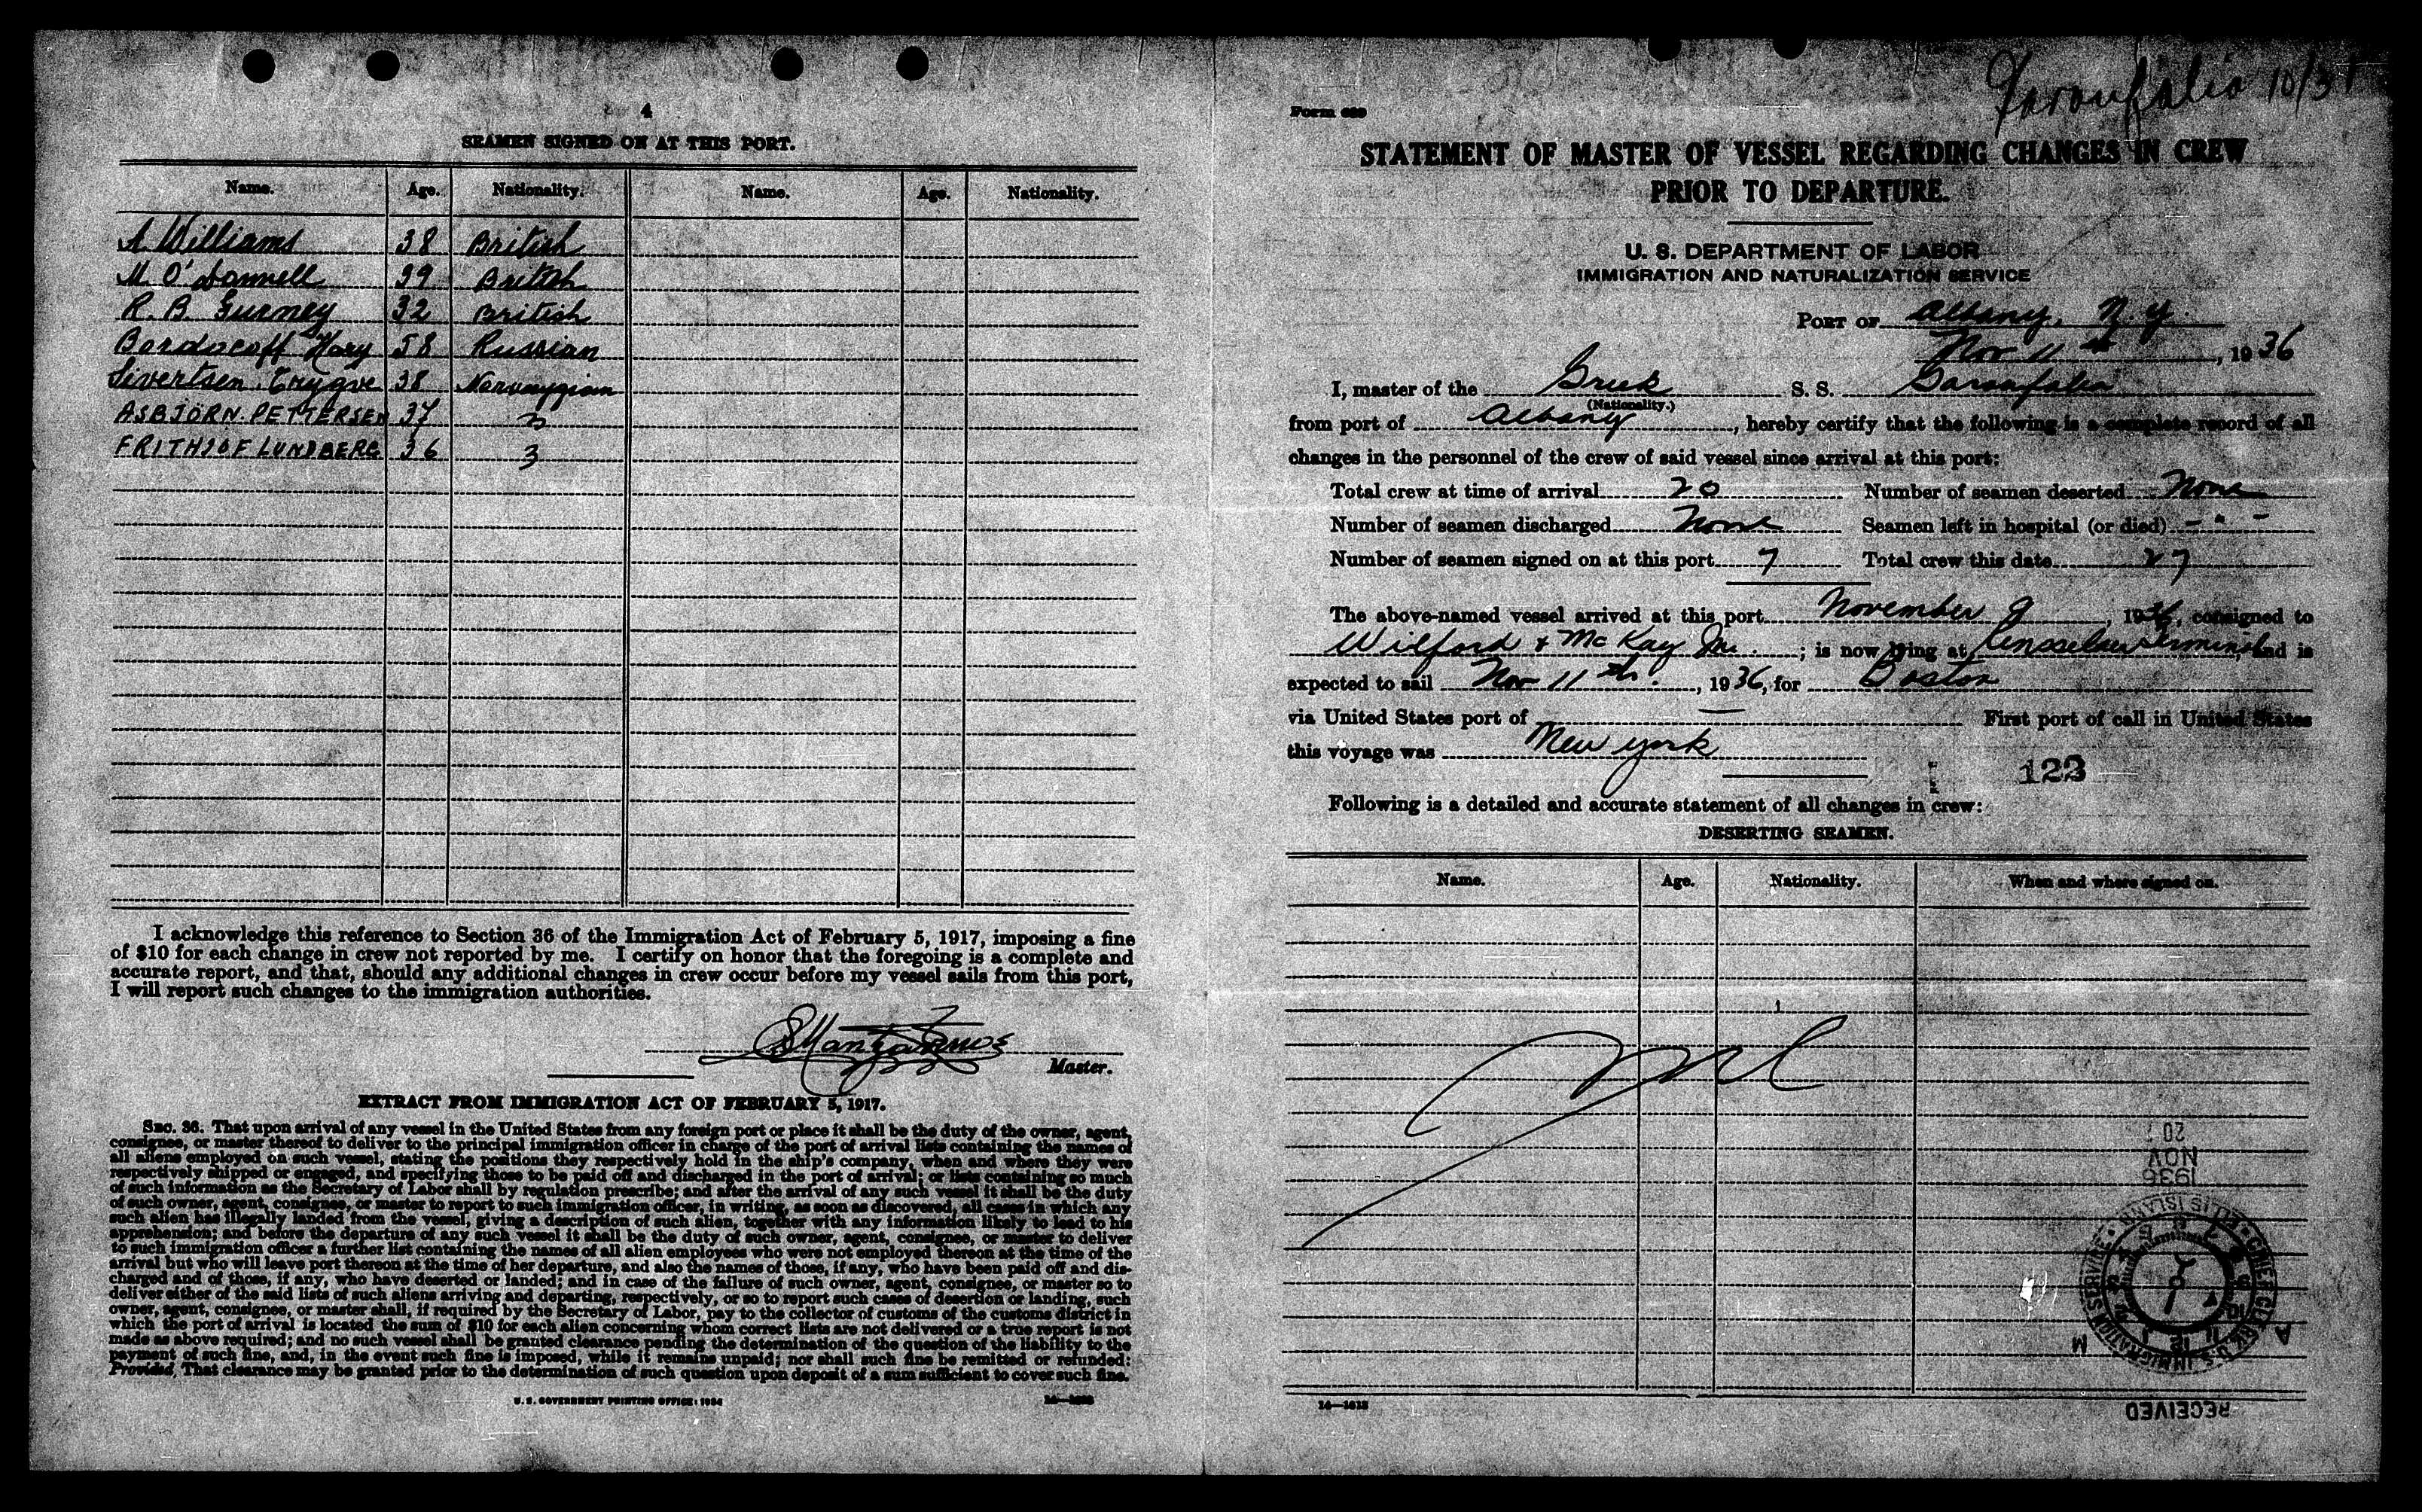 4
SEAMEN SIGNED ON AT THIS PORT.
Name. Age. Nationality. Name. Age. Nationality.
A Williams 38 British
M. O'Donnell 39 British
R. B. Gurney 32 British
Hary 58 Russian
Sivertsen Trygve 38 Norwaygian
ASBJÖRN. PETTERSEN 37
FRITHJOF LUNDBERG 36
I acknowledge this reference to Section 36 of the Immigration Act of February 5, 1917, imposing a fine
of $10 for each change in crew not reported by me. I certify on honor that the foregoing is a complete and
accurate report, and that, should any additional changes in crew occur before my vessel sails from this port,
I will report such changes to the immigration authorities.
Master.
EXTRACT FROM IMMIGRATION ACT OF FEBRUARY 5, 1917.
SEC. 36. That upon arrival of any vessel in the United States from any foreign port or place it shall be the duty of the owner, agent,
consignee, or master thereof to deliver to the principal immigration officer in charge of the port of arrival lists containing the names of
all aliens employed on such vessel, stating the positions they respectively hold in the ship's company, when and where they were
respectively shipped or engaged, and specifying those to be paid off and discharged in the port of arrival; or lists containing so much
of such information as the Secretary of Labor shall by regulation prescribe; and after the arrival of any such vessel it shall be the duty
of such owner, agent, consignee, or master to report to such immigration officer, in writing, as soon as discovered, all cases in which any
such alien has illegally landed from the vessel, giving a description of such alien, together with any information likely to lead to his
apprehension; and before the departure of any such vessel it shall be the duty of such owner, agent, consignee, or master to deliver
to such immigration officer a further list containing the names of all alien employees who were not employed thereon at the time of the
arrival but who will leave port thereon at the time of her departure, and also the names of those, if any, who have been paid off and dis-
charged and of those, if any, who have deserted or landed; and in case of the failure of such owner, agent, consignee, or master so to
deliver either of the said lists of such aliens arriving and departing, respectively, or so to report such cases of desertion or landing, such
owner, agent, consignee, or master shall, if required by the Secretary of Labor, pay to the collector of customs of the customs district in
which the port of arrival is located the sum of $10 for each alien concerning whom correct lists are not delivered or a true report is not
made as above required; and no such vessel shall be granted clearance pending the determination of the question of the liability to the
payment of such fine, and, in the event such fine is imposed, while it remains unpaid; nor shall such fine be remitted or refunded:
Provided, That clearance may be granted prior to the determination of such question upon deposit of a sum sufficient to cover such fine.
U. S. GOVERNMENT PRINTING OFFICE: 1934
Garoufalia 10/31
Form
STATEMENT OF MASTER OF VESSEL REGARDING CHANGES IN CREW
PRIOR TO DEPARTURE.
U. S. DEPARTMENT OF LABOR
IMMIGRATION AND NATURALIZATION SERVICE
PORT OF Albany, N. Y.
Nov 11th, 1936
I, master of the Greek S. S. Garoufalia
(Nationality.)
from port of Albany, hereby certify that the following is a complete record of all
changes in the personnel of the crew of said vessel since arrival at this port:
Total crew at time of arrival 20 Number of seamen deserted None
Number of seamen discharged None Seamen left in hospital (or died) - " -
Number of seamen signed on at this port 7 Total crew this date 27
The above-named vessel arrived at this port November 9, 1936, consigned to
Wilford & McKay Inc.; is now lying at Rensselaer Terminal, and is
expected to sail Nov 11th., 1936, for Boston
via United States port of — First port of call in United States
this voyage was New York
122
Following is a detailed and accurate statement of all changes in crew:
DESERTING SEAMEN.
Name. Age. Nationality. When and where signed on.
NOV
1936
ELLIS ISLAND · CHIEF CLERK U.S. IMMIGRATION SERVICE
A M
RECEIVED